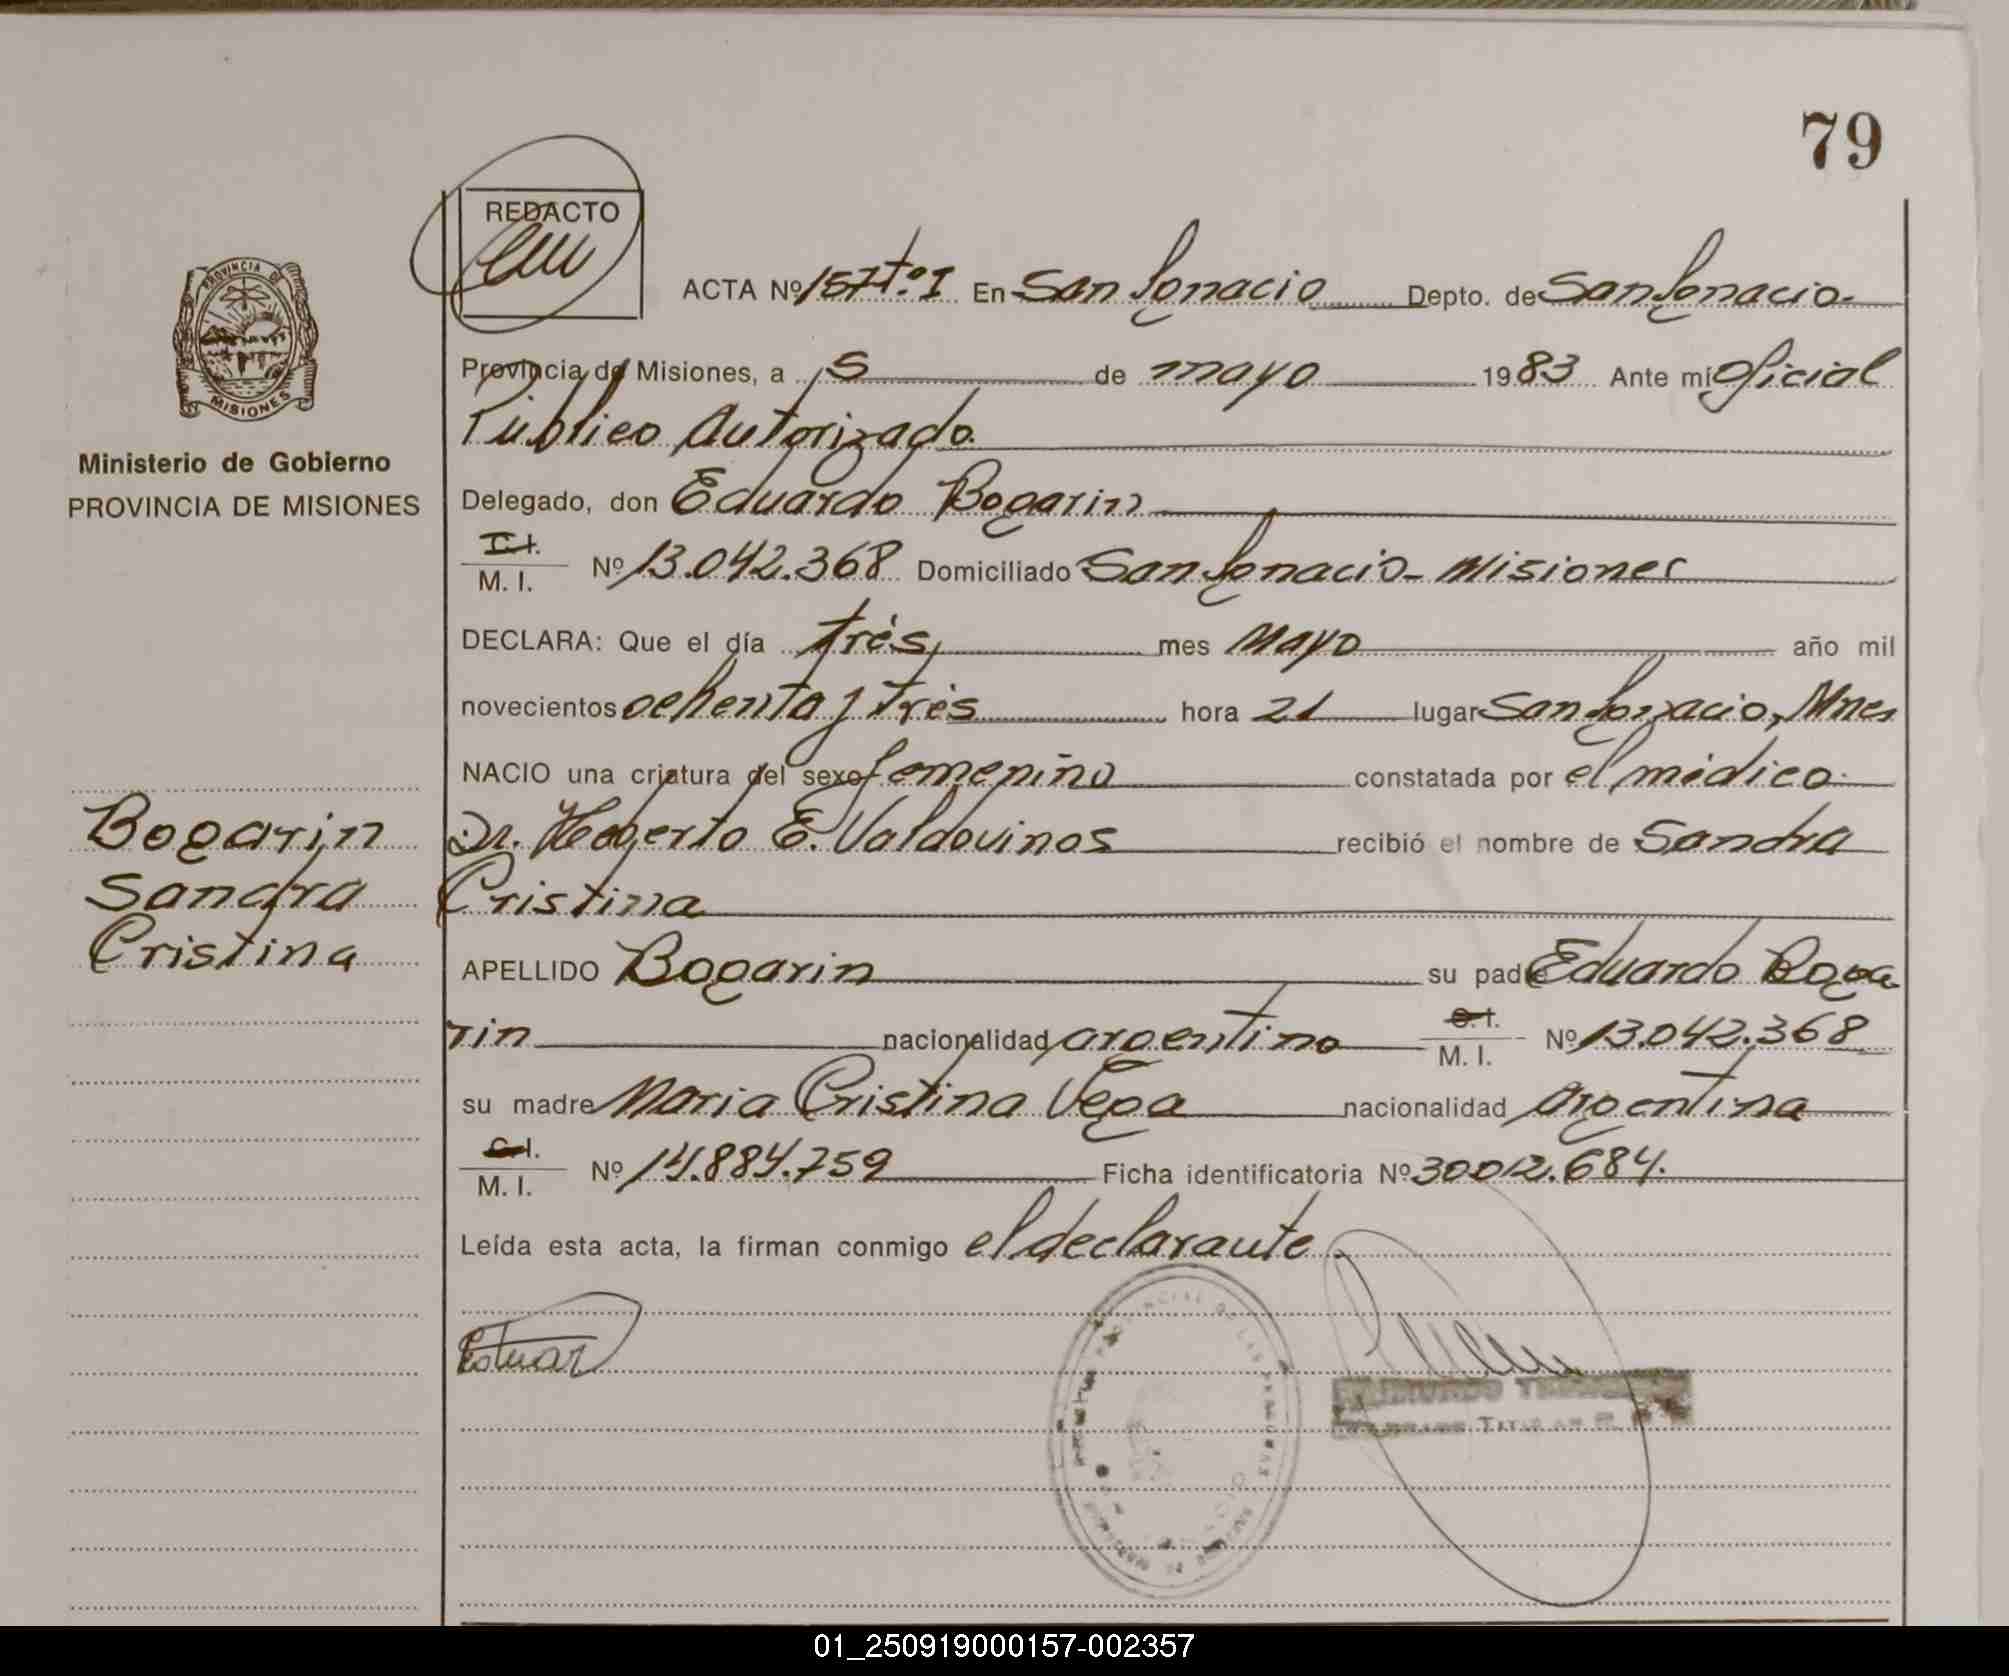 79
REDACTO
ACTA Nº 157 tº I En San Ignacio Depto. de San Ignacio-
PROVINCIA DE
MISIONES
Provincia de Misiones, a 5 de mayo 1983 Ante mí Oficial
Público Autorizado.
Ministerio de Gobierno
PROVINCIA DE MISIONES
Delegado, don Eduardo Bogarin
C.I.
M. I. Nº 13.042.368 Domiciliado San Ignacio- Misiones
DECLARA: Que el día trés, mes Mayo año mil
novecientos ochenta y trés hora 21 lugar San Ignacio, Mnes
NACIO una criatura del sexo femenino constatada por el médico-
Bogarin
Sandra
Cristina
Dr. Heberto E. Valdovinos recibió el nombre de Sandra
Cristina
APELLIDO Bogarin su padre Eduardo Boga
rin nacionalidad argentino C.I. M. I. Nº 13.042.368
su madre Maria Cristina Vega nacionalidad Argentina
C.I.
M. I. Nº 14.884.759 Ficha identificatoria Nº 30012.684.
Leída esta acta, la firman conmigo el declarante.
01_250919000157-002357